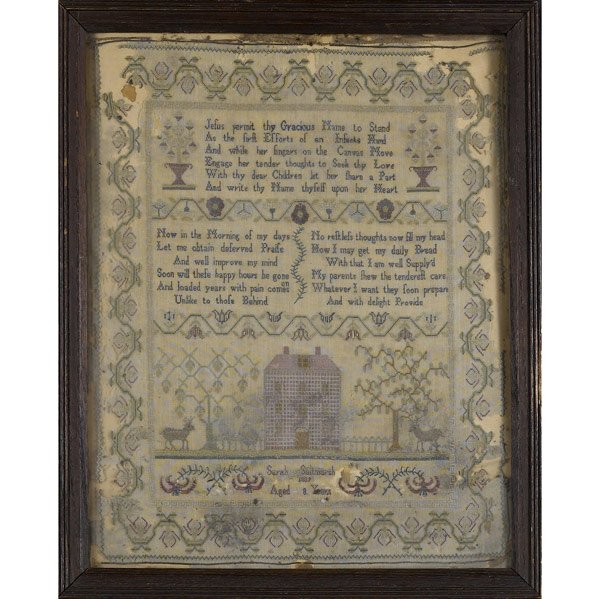 Jesus permit thy Gracious Name to Stand
As the first Efforts of an Infants Hand
And while her fingers on the Canvas Move
Engage her tender thoughts to Seek thy Love
With thy dear Children let her Share a Part
And write thy Name thyself upon her Heart
Now in the Morning of my days
Let me obtain deserved Praise
And well improve my mind
Soon will these happy hours be gone
And loaded years with pain come on
Unlike to those Behind
No restless thoughts now fill my head
How I may get my daily Bread
With that I am well Supply'd
My parents shew the tenderest care
Whatever I want they soon prepare
And with delight Provide
Sarah
Aged 8 Years